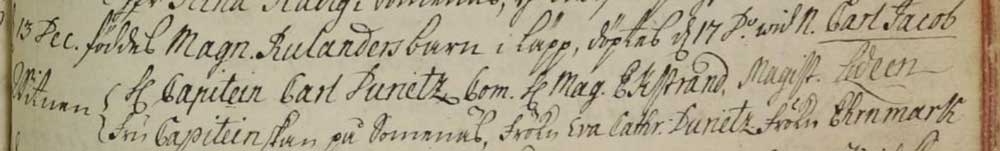 på Somenäs,
13 Dec. föddes Magn. Rulanders barn i Lapp, döptes d 17 Do. wid N. Carl Jacob
Witnen { H Capitein Carl Durietz, Com. H Mag. Ekstrand, Magist. Lideen
Fru Capiteinskan på Somenäs, Frökn Eva Cathr. Durietz Frökn Ehrnmark